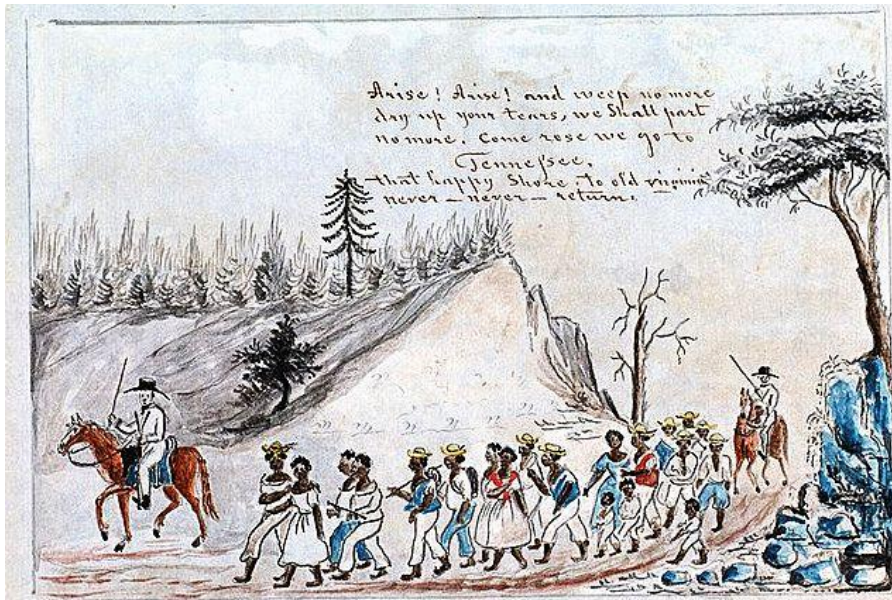 Arise! Arise! and weep no more
dry up your tears, we Shall part
no more. Come rose we go to
Tennessee,
that happy Shore. To old virginia
never — never — return.